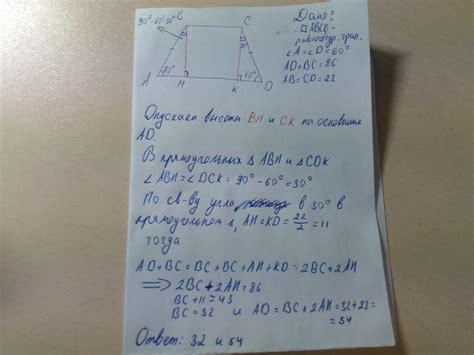 90°-60°=30°
B
C
30°
A
60°
H
K
60°
D
Дано:
□ABCD-
равнобедр. трап.
∠A=∠D=60°
AD+BC=86
AB=CD=22
Опускаем высоты BH и CK на основание
AD.
В прямоугольных △ ABH и △ CDK
∠ABH=∠DCK = 90°-60°=30°
По св-ву угла в 30° в
прямоугольном △, AH=KD=22/2=11
тогда
AD+BC=BC+BC+AH+KD=2BC+2AH
⇒ 2BC+2AH=86
BC+11=43
BC=32 и AD=BC+2AH=32+22=
=54
Ответ: 32 и 54